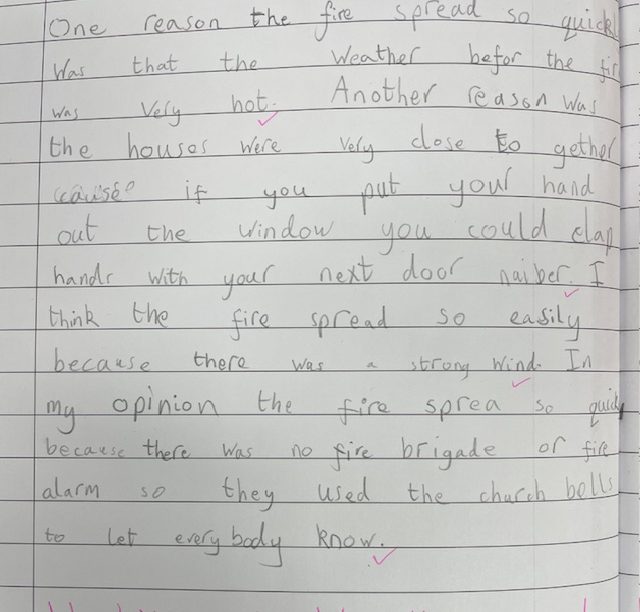 One reason the fire spread so quickl
Was that the weather befor the fir
was very hot. Another reason was
the houses were very close to gether
cause if you put your hand
out the window you could clap
hands with your next door naiber. I
think the fire spread so easily
because there was a strong wind. In
my opinion the fire sprea so quickly
because there was no fire brigade or fire
alarm so they used the church bells
to let everybody know.